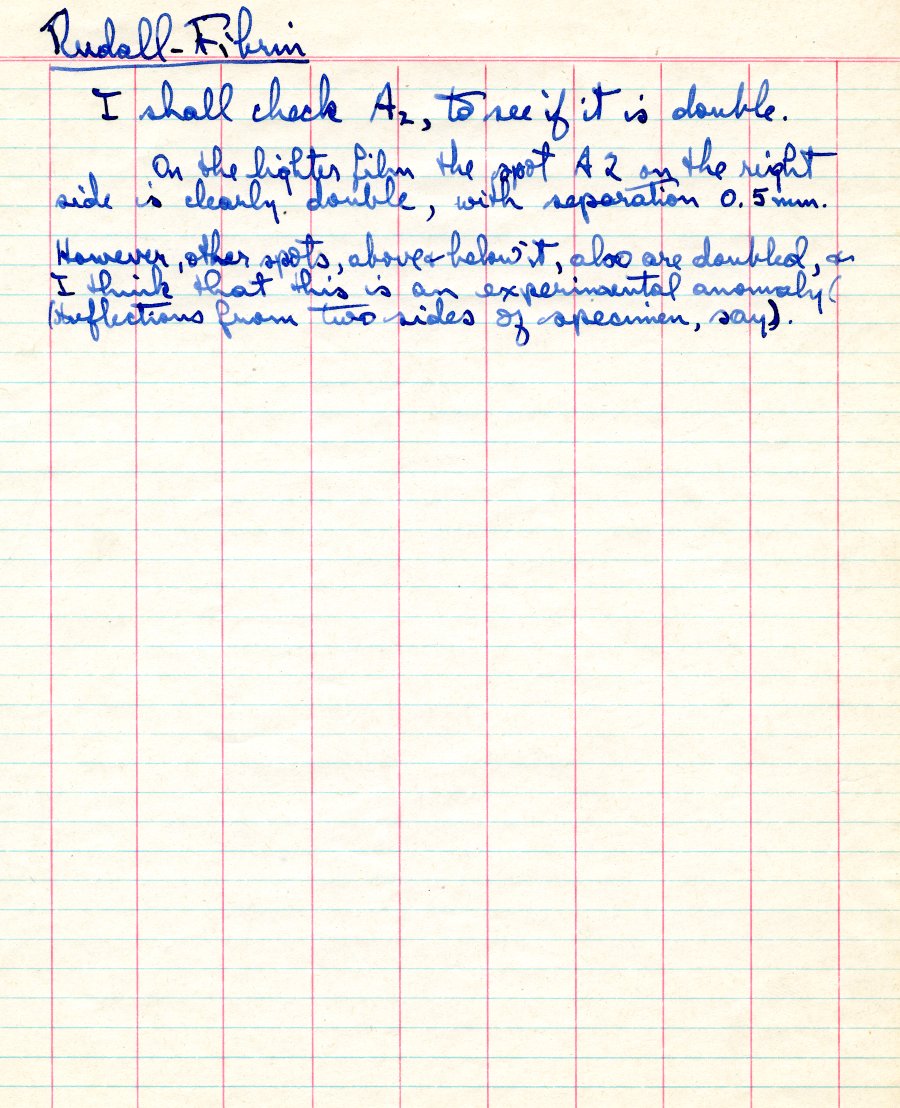 Rudall-Fibrin
I shall check A₂, to see if it is double.
On the lighter film the spot A2 on the right
side is clearly double, with separation 0.5 mm.
However, other spots, above & below it, also are doubled, &
I think that this is an experimental anomaly (
(reflections from two sides of specimen, say).